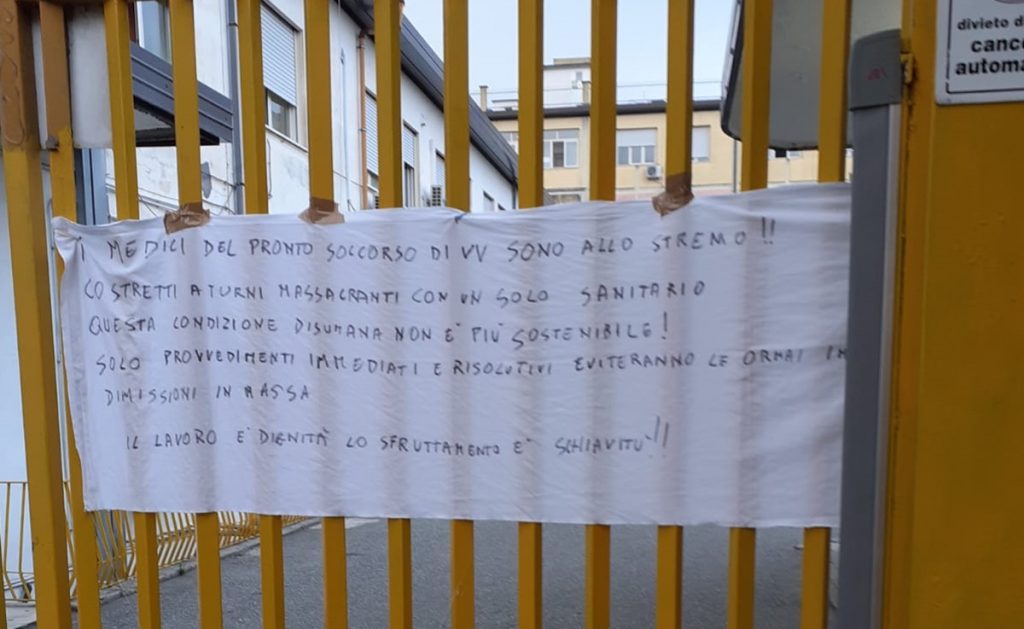 I MEDICI DEL PRONTO SOCCORSO DI VV SONO ALLO STREMO!!
COSTRETTI A TURNI MASSACRANTI CON UN SOLO SANITARIO
QUESTA CONDIZIONE DISUMANA NON E' PIÙ SOSTENIBILE!
SOLO PROVVEDIMENTI IMMEDIATI E RISOLUTIVI EVITERANNO LE ORMAI
DIMISSIONI IN MASSA
IL LAVORO E' DIGNITÀ LO SFRUTTAMENTO E' SCHIAVITU'!!
divieto
automa